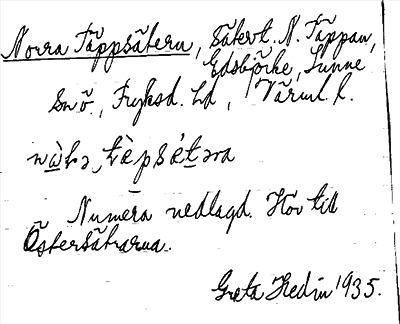 Norra Täppsätern, sätert. N. Täppan,
Edsbjörke, Sunne
sn ö., Fryksd. hd, Värml. l.
Numera nedlagd. Hör till
Östersätrarna.
Greta Hedin 1935.